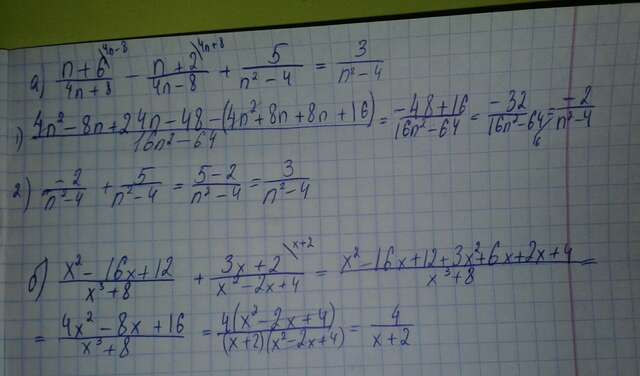 а) (n+6)/(4n+8) \4n-8 - (n+2)/(4n-8) \4n+8 + 5/(n²-4) = 3/(n²-4)
1) (4n²-8n+24n-48-(4n²+8n+8n+16))/(16n²-64) = (-48+16)/(16n²-64) = -32/(16n²-64) = -2/(n²-4)
2) -2/(n²-4) + 5/(n²-4) = (5-2)/(n²-4) = 3/(n²-4)
б) (x²-16x+12)/(x³+8) + (3x+2)/(x²-2x+4) \x+2 = (x²-16x+12+3x²+6x+2x+4)/(x³+8) =
= (4x²-8x+16)/(x³+8) = 4(x²-2x+4)/((x+2)(x²-2x+4)) = 4/(x+2)